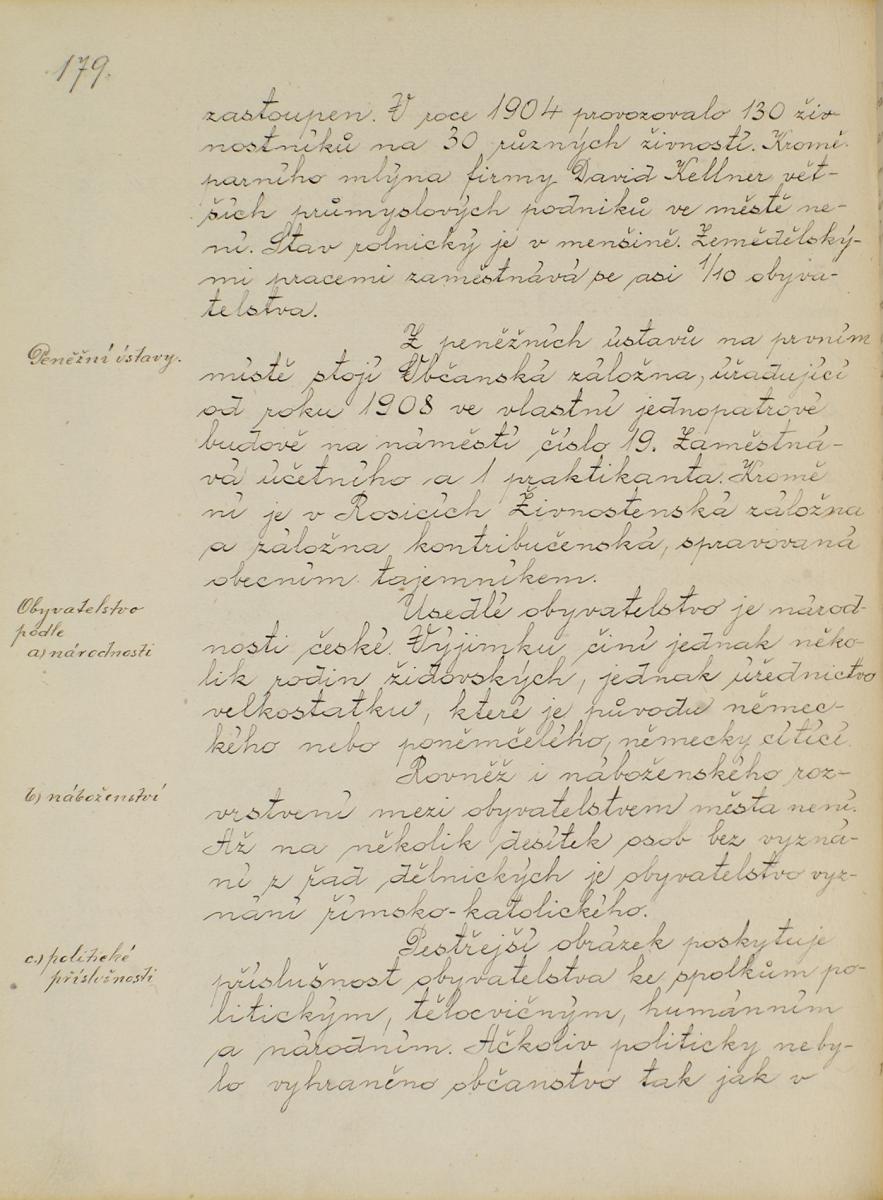 179.
zastoupen. V roce 1904 provozovalo 130 živ-
nostníků na 30 různých živností. Kromě
parního mlýna firmy David Kellner vět-
ších průmyslových podniků ve městě ne-
ní. Stav rolnický je v menšině. Zemědělský-
mi pracemi zaměstnává se asi 1/10 obyva-
telstva.
Peněžní ústavy.
Z peněžních ústavů na prvním
místě stojí Občanská záložna, úřadující
od roku 1908 ve vlastní jednopatrové
budově na náměstí číslo 19. Zaměstná-
vá účetního a 1 praktikanta. Kromě
ní je v Rosicích Živnostenská záložna
a záložna kontribučenská, spravovaná
obecním tajemníkem.
Obyvatelstvo
podle
a) národnosti
Usedlé obyvatelstvo je národ-
nosti české. Výjimku činí jednak něko-
lik rodin židovských, jednak úřednictvo
velkostatku, které je původu němec-
kého nebo poněmčelého, německy cítící.
b) náboženství
Rovněž i náboženského roz-
vrstvení mezi obyvatelstvem města není.
Až na několik desítek osob bez vyzná-
ní z řad dělnických je obyvatelstvo vyz-
nání římsko-katolického.
c.) politické
příslušnosti
Pestřejší obrázek poskytuje
příslušnost obyvatelstva ke spolkům po-
litickým, tělocvičným, humánním
a národním. Ačkoliv politicky neby-
lo vyhraněno občanstvo tak jak v